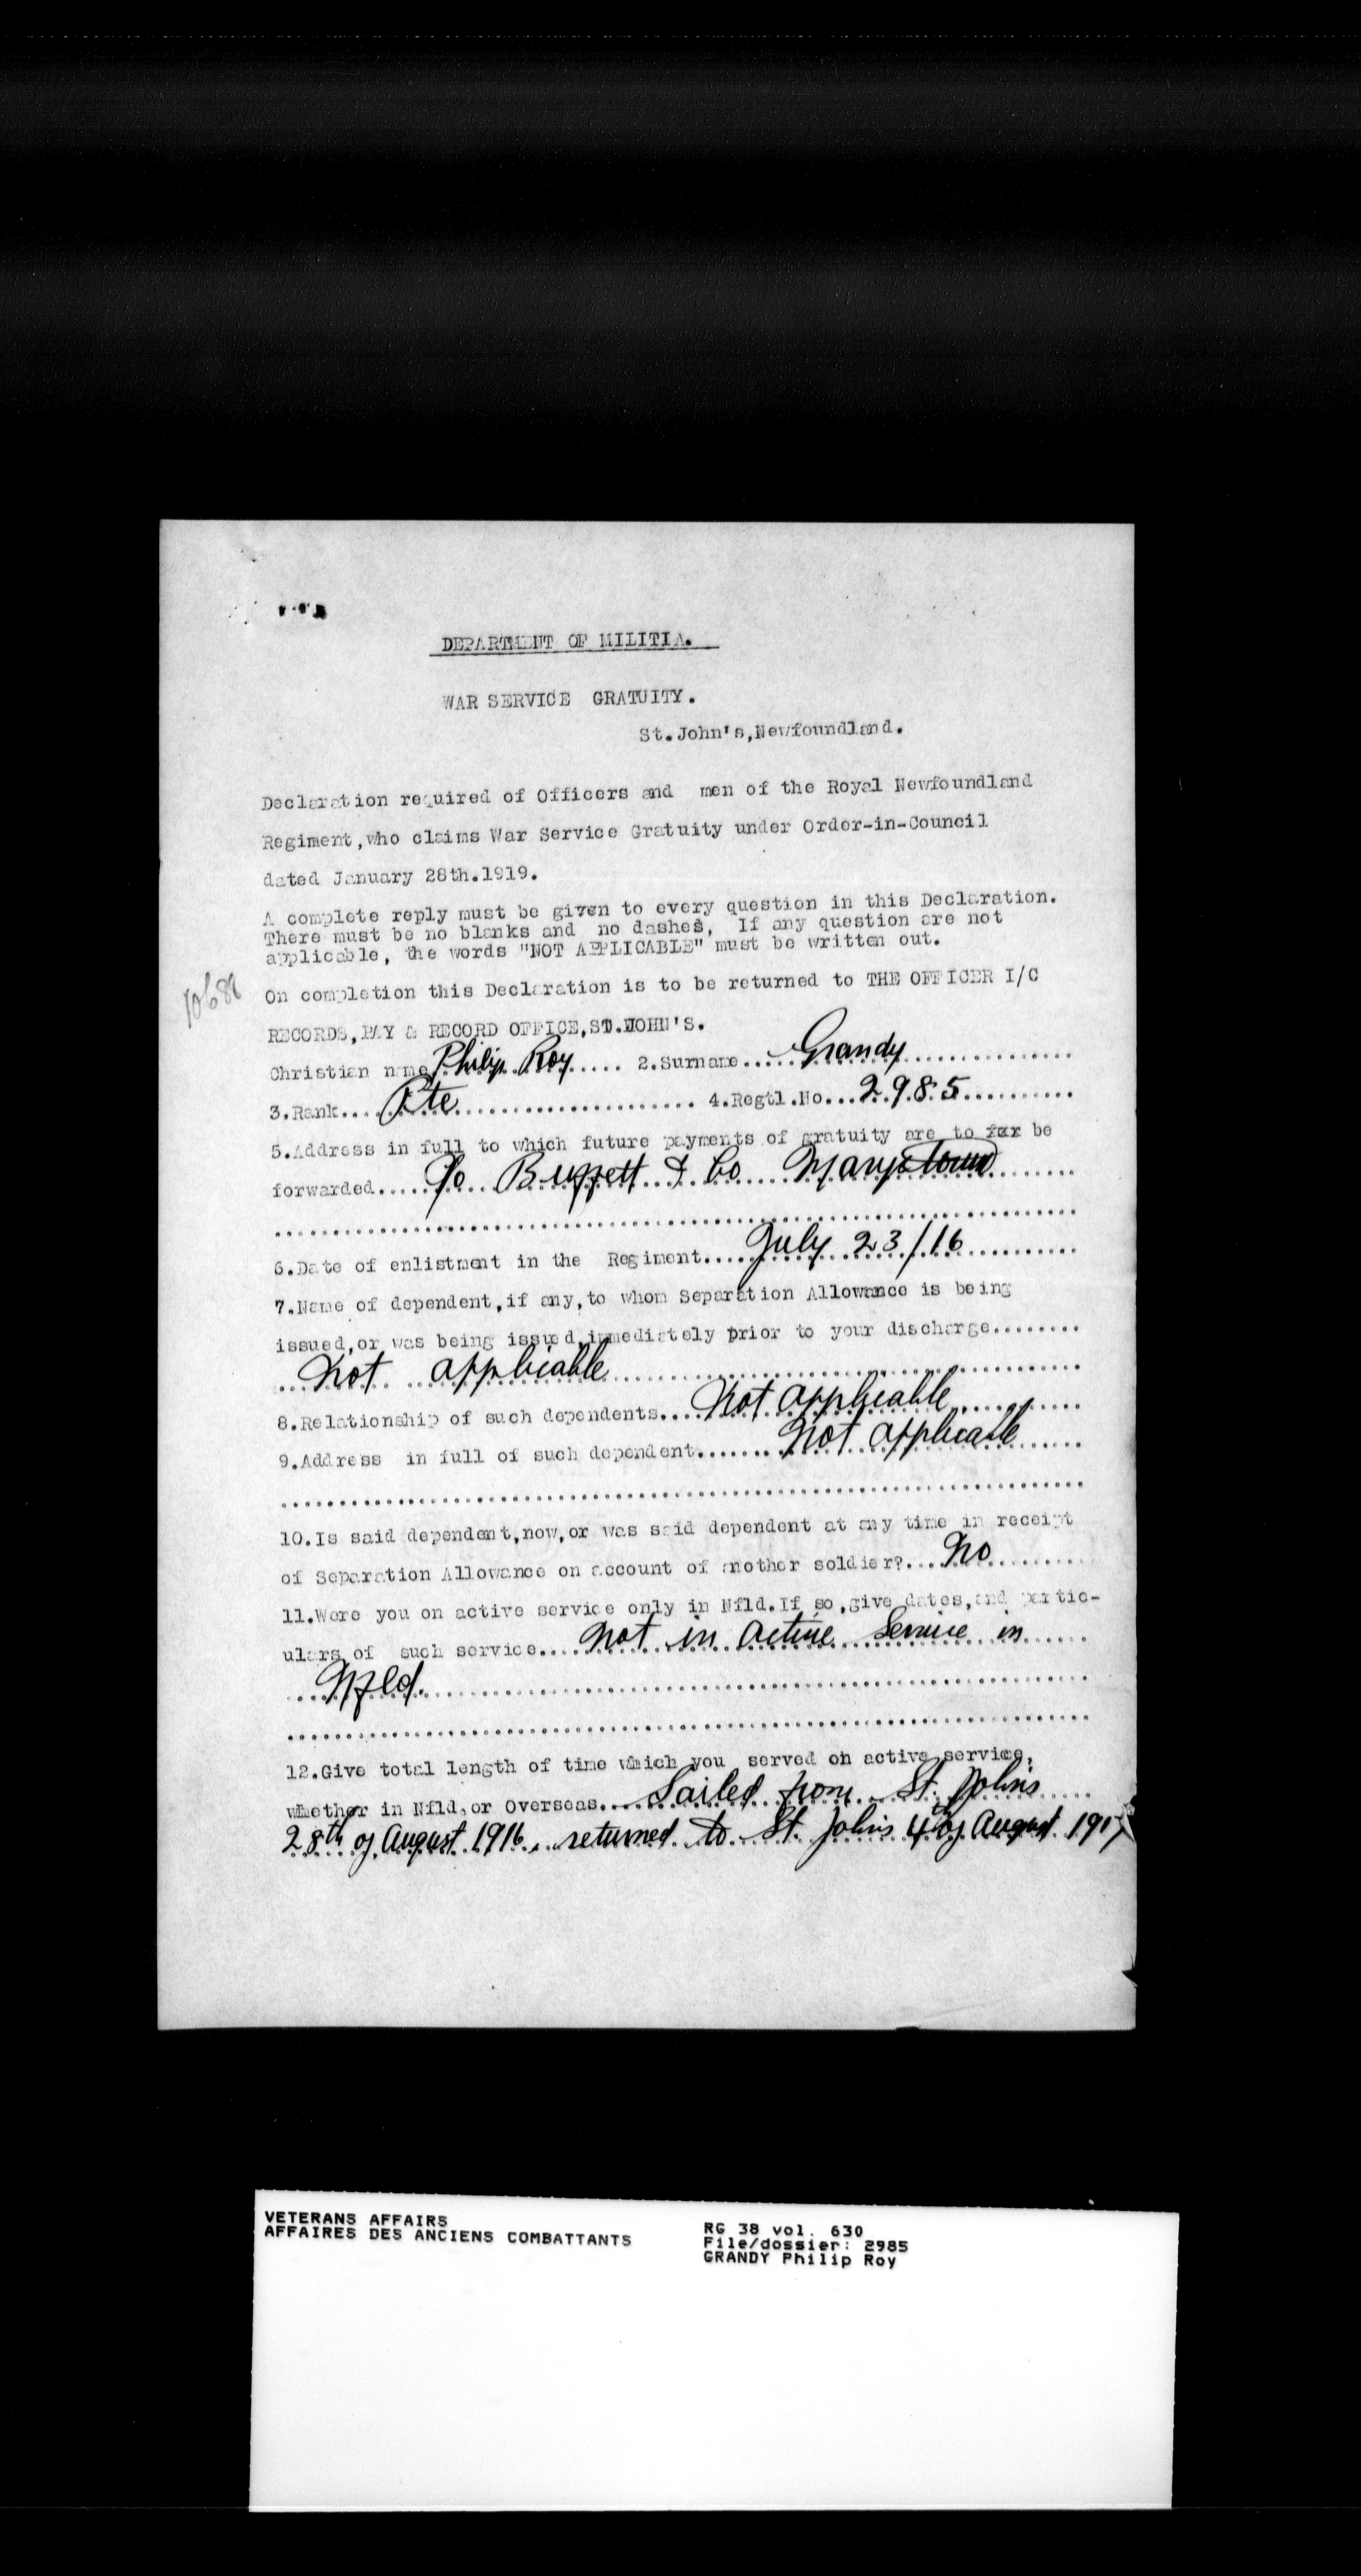 DEPARTMENT OF MILITIA.
WAR SERVICE GRATUITY.
St.John's,Newfoundland.
Declaration required of Officers and men of the Royal Newfoundland
Regiment,who claims War Service Gratuity under Order-in-Council
dated January 28th.1919.
A complete reply must be given to every question in this Declaration.
There must be no blanks and no dashes, If any question are not
applicable, the words "NOT APPLICABLE" must be written out.
On completion this Declaration is to be returned to THE OFFICER I/C
RECORDS,PAY & RECORD OFFICE,ST.JOHN'S.
Christian name Philip Roy ..... 2.Surname..... Grandy ...............
3.Rank.... Pte ..................... 4.Regtl.No... 2985 ..........
5.Address in full to which future payments of gratuity are to fur be
forwarded..... c/o Buffett & Co Marystown .......
......................................................................
6.Date of enlistment in the Regiment.... July 23/16 ............
7.Name of dependent,if any,to whom Separation Allowance is being
issued,or was being issued,immediately prior to your discharge........
... Not applicable ..............................
8.Relationship of such dependents... Not applicable ...........
9.Address in full of such dependent....... Not applicable ......
......................................................................
10.Is said dependent,now,or was said dependent at any time in receipt
of Separation Allowance on account of another soldier?... No ........
11.Were you on active service only in Nfld.If so,give dates,and partic-
ulars of such service.... Not in active Service in ......
... Nfld. ..................................................
......................................................................
12.Give total length of time which you served on active service,
whether in Nfld,or Overseas..... Sailed from St. Johns ....
28th of August 1916 returned to St. Johns 4th of August 1917
VETERANS AFFAIRS
AFFAIRES DES ANCIENS COMBATTANTS
RG 38 vol. 630
File/dossier: 2985
GRANDY Philip Roy